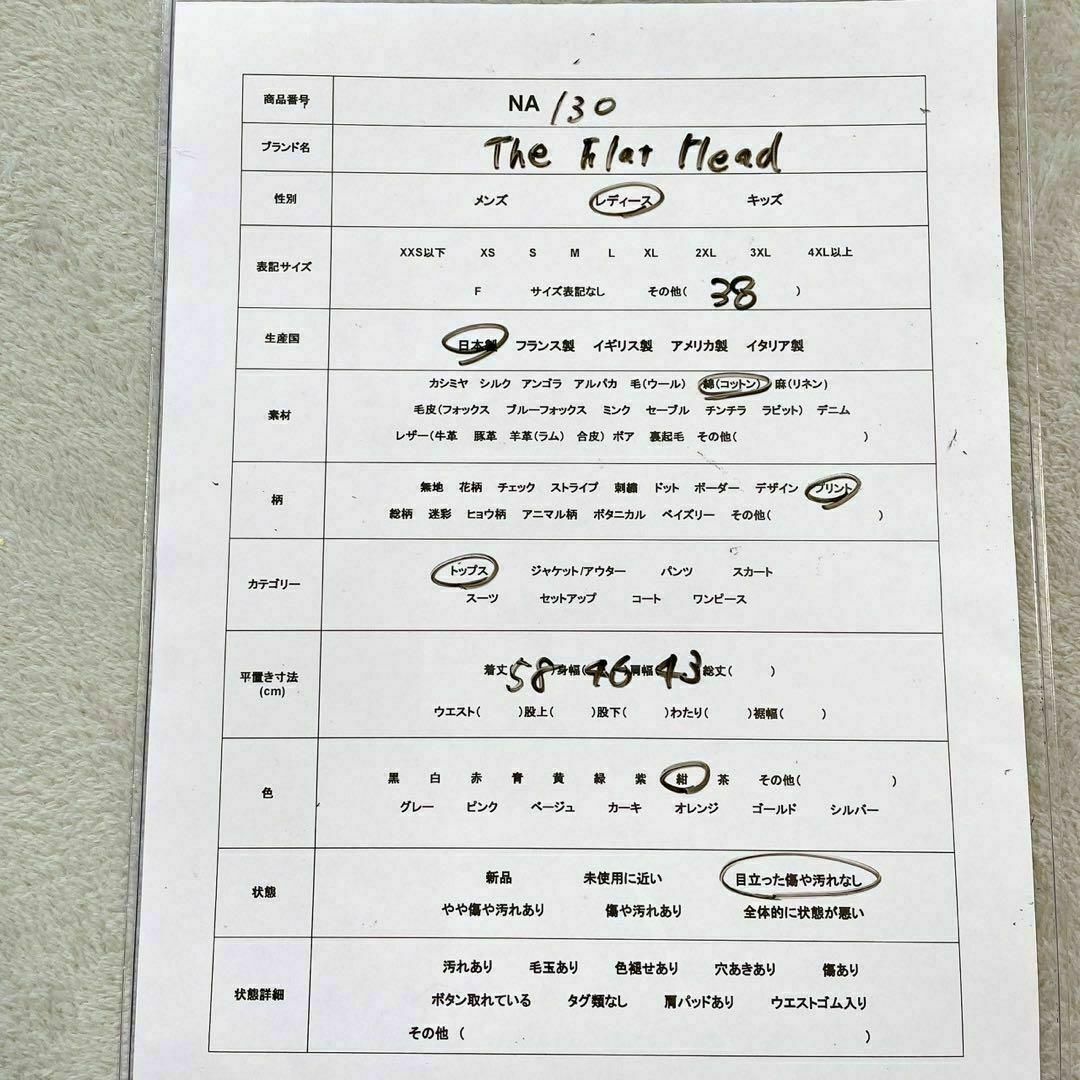 商品番号 NA 130
ブランド名 The Flat Head
性別 メンズ レディース キッズ
XXS以下 XS S M L XL 2XL 3XL 4XL以上
表記サイズ
F サイズ表記なし その他( 38 )
生産国 日本製 フランス製 イギリス製 アメリカ製 イタリア製
カシミヤ シルク アンゴラ アルパカ 毛(ウール) 綿(コットン) 麻(リネン)
素材 毛皮(フォックス ブルーフォックス ミンク セーブル チンチラ ラビット) デニム
レザー(牛革 豚革 羊革(ラム) 合皮) ボア 裏起毛 その他( )
柄 無地 花柄 チェック ストライプ 刺繍 ドット ボーダー デザイン プリント
総柄 迷彩 ヒョウ柄 アニマル柄 ボタニカル ペイズリー その他( )
カテゴリー トップス ジャケット/アウター パンツ スカート
スーツ セットアップ コート ワンピース
平置き寸法 着丈( 58 )身幅( 46 )肩幅( 43 )総丈( )
(cm)
ウエスト( )股上( )股下( )わたり( )裾幅( )
色 黒 白 赤 青 黄 緑 紫 紺 茶 その他( )
グレー ピンク ベージュ カーキ オレンジ ゴールド シルバー
状態 新品 未使用に近い 目立った傷や汚れなし
やや傷や汚れあり 傷や汚れあり 全体的に状態が悪い
状態詳細 汚れあり 毛玉あり 色褪せあり 穴あきあり 傷あり
ボタン取れている タグ類なし 肩パッドあり ウエストゴム入り
その他 ( )